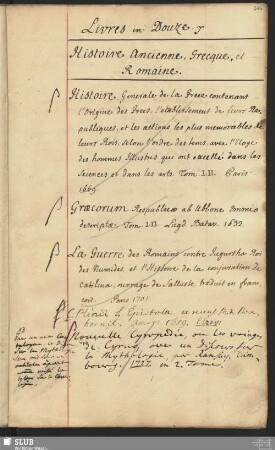 Livres in Douze
Histoire Ancienne, Grecque, et
Romaine.
Histoire Generale de la Grece contenant
l'Origine des Grecs, l'etablissement de leurs Re-
publiques, et les actions les plus memorables de
leurs Rois, selon l'ordre des tems, avec l'Eloge
des hommes Illustres qui ont excellé dans les
Sciences et dans les arts. Tom. I.II. Paris
1669
Græcorum Respublicæ ab Ubbone Emmio
descriptæ Tom. I.II. Lugd. Batav. 1632
La Guerre des Romains contre Jugurtha Roi
des Numides, et l'Histoire de la conjuration de
Catilina, ouvrage de Salluste traduit en fran-
çois. Paris 1701
C. Plinii Epistolæ
1659. Elzev.
Nouvelle Cyropædie ou les voyages
de Cyrus, avec un discours sur
la Mythologie, par Ramsay,
1727 in 2. Tom.
SLUB
Wir führen Wissen.